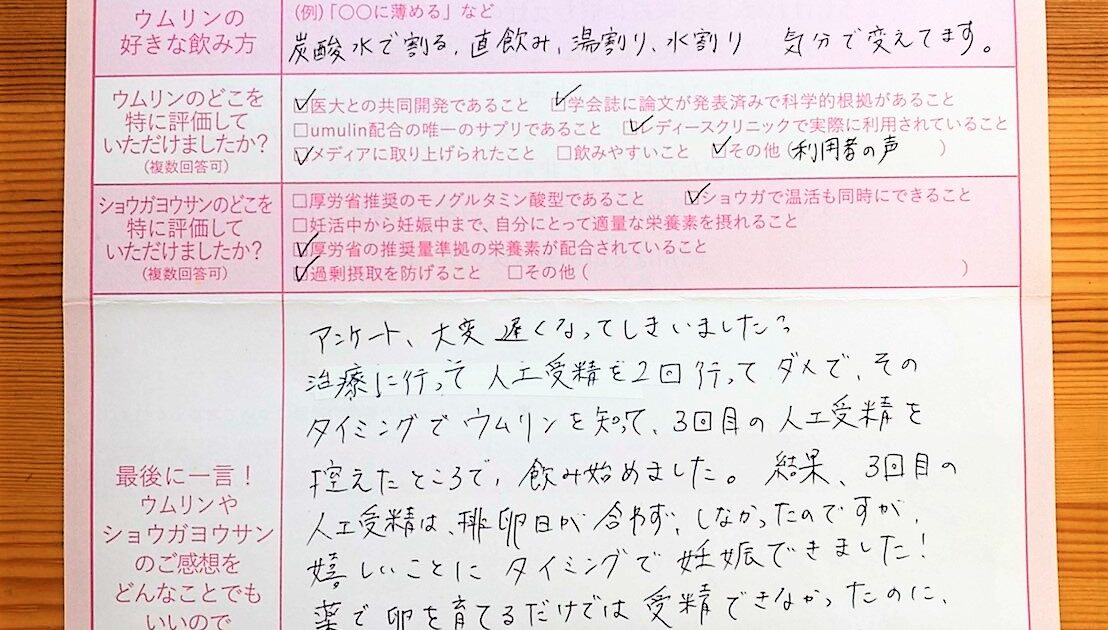 ウムリンの
好きな飲み方
(例)「〇〇に薄める」など
炭酸水で割る、直飲み、湯割り、水割り 気分で変えてます。
ウムリンのどこを
特に評価して
いただけましたか?
(複数回答可)
☑医大との共同開発であること ☑学会誌に論文が発表済みで科学的根拠があること
□umulin配合の唯一のサプリであること ☑レディースクリニックで実際に利用されていること
☑メディアに取り上げられたこと □飲みやすいこと ☑その他(利用者の声 )
ショウガヨウサンのどこを
特に評価して
いただけましたか?
(複数回答可)
□厚労省推奨のモノグルタミン酸型であること ☑ショウガで温活も同時にできること
□妊活中から妊娠中まで、自分にとって適量な栄養素を摂れること
☑厚労省の推奨量準拠の栄養素が配合されていること
☑過剰摂取を防げること □その他( )
最後に一言!
ウムリンや
ショウガヨウサン
のご感想を
どんなことでも
いいので
アンケート、大変遅くなってしまいました。
治療に行って人工受精を2回行ってダメで、その
タイミングでウムリンを知って、3回目の人工受精を
控えたところで、飲み始めました。結果、3回目の
人工受精は、排卵日が合わず、しなかったのですが、
嬉しいことにタイミングで妊娠できました!
薬で卵を育てるだけでは受精できなかったのに、